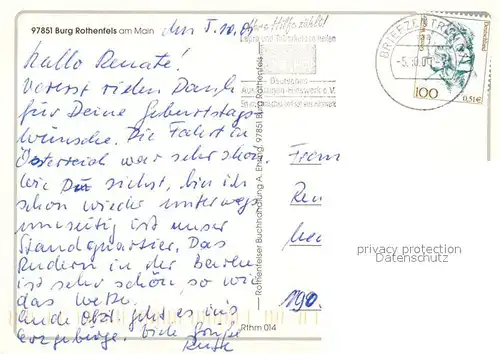 97851 Burg Rothenfels am Main
den 5.10.01
Ihre Hilfe zählt!
Lepra und Tuberkulose heilen
Deutsches
Aussätzigen-Hilfswerk e.V.
BRIEFZENTRUM
-5.10.01
100
0,51€
Hallo Renate!
Vorerst vielen Dank
für Deine Geburtstags
wünsche. Die Fahrt in
Österreich war sehr schön.
Wie Du siehst, bin ich
schon wieder unterwegs
umseitig ist unser
Standquartier. Das
Rudern in der
ist sehr schön, so wie
das Wetter.
Ende Okt. geht es ins
Erzgebirge. Viele Grüße
Rothenfelser Buchhandlung A. 97851 Burg Rothenfels
Rthm 014
Fram
Ren
190.
privacy protection
Datenschutz